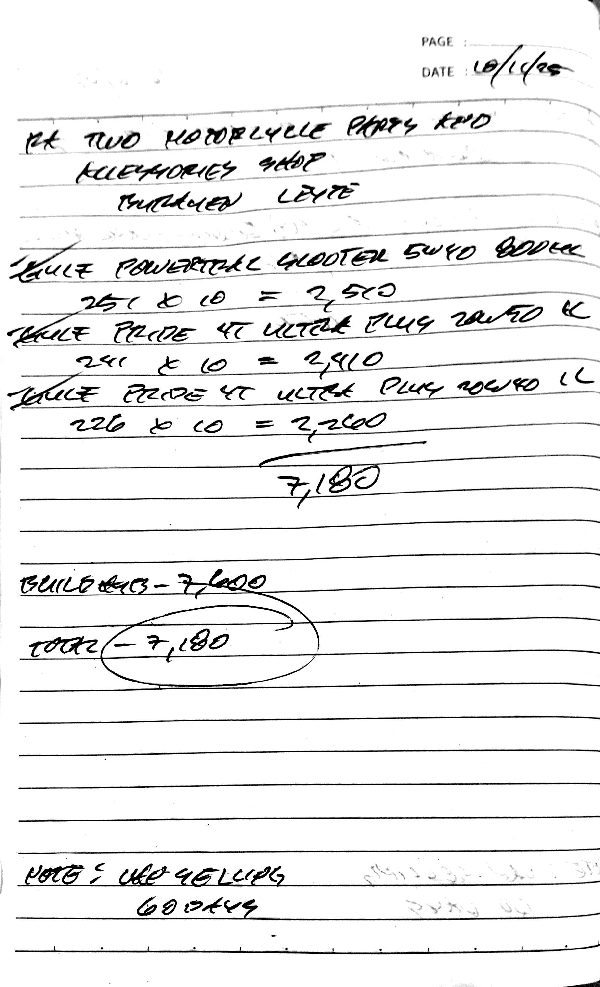 PAGE :
DATE : 10/11/25
RA TWO MOTORCYCLE PARTS AND
ACCESSORIES SHOP
BURAUEN LEYTE
POWERTRAC SCOOTER 5W40 800ML
251 X 10 = 2,510
PRIDE 4T ULTRA PLUS 20W50 1L
241 X 10 = 2,410
PRIDE 4T ULTRA PLUS 20W40 1L
226 X 10 = 2,260
7,180
- 7,600
TOTAL - 7,180
NOTE : USE SELLING
60 DAYS